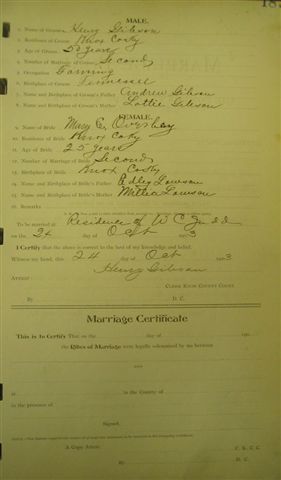 MALE.
1. Name of Groom Henry Gibson
2. Residence of Groom Knox Co Ky
3. Age of Groom 50 years
4. Number of Marriage of Groom Second
5. Occupation Farming
6. Birthplace of Groom Tennessee
7. Name and Birthplace of Groom's Father Andrew Gibson
8. Name and Birthplace of Groom's Mother Lottie Gibson
FEMALE.
9. Name of Bride Mary E.
10. Residence of Bride Knox Co Ky
11. Age of Bride 25 years
12. Number of Marriage of Bride Second
13. Birthplace of Bride Knox Co Ky
14. Name and Birthplace of Bride's Father Edley Lawson
15. Name and Birthplace of Bride's Mother Lawson
16. Remarks
To be married at Residence of W C
on the 24 day of Oct 1903
I Certify that the above is correct to the best of my knowledge and belief.
Witness my hand, this 24 day of Oct 1903
Henry Gibson
Attest:
CLERK KNOX COUNTY COURT.
By D. C.
Marriage Certificate
This is to Certify That on the day of 190
the Rites of Marriage were legally solemnized by me between
and
at in the County of
in the presence of
Signed,
A Copy Attest: C. K. C. C.
By D. C.